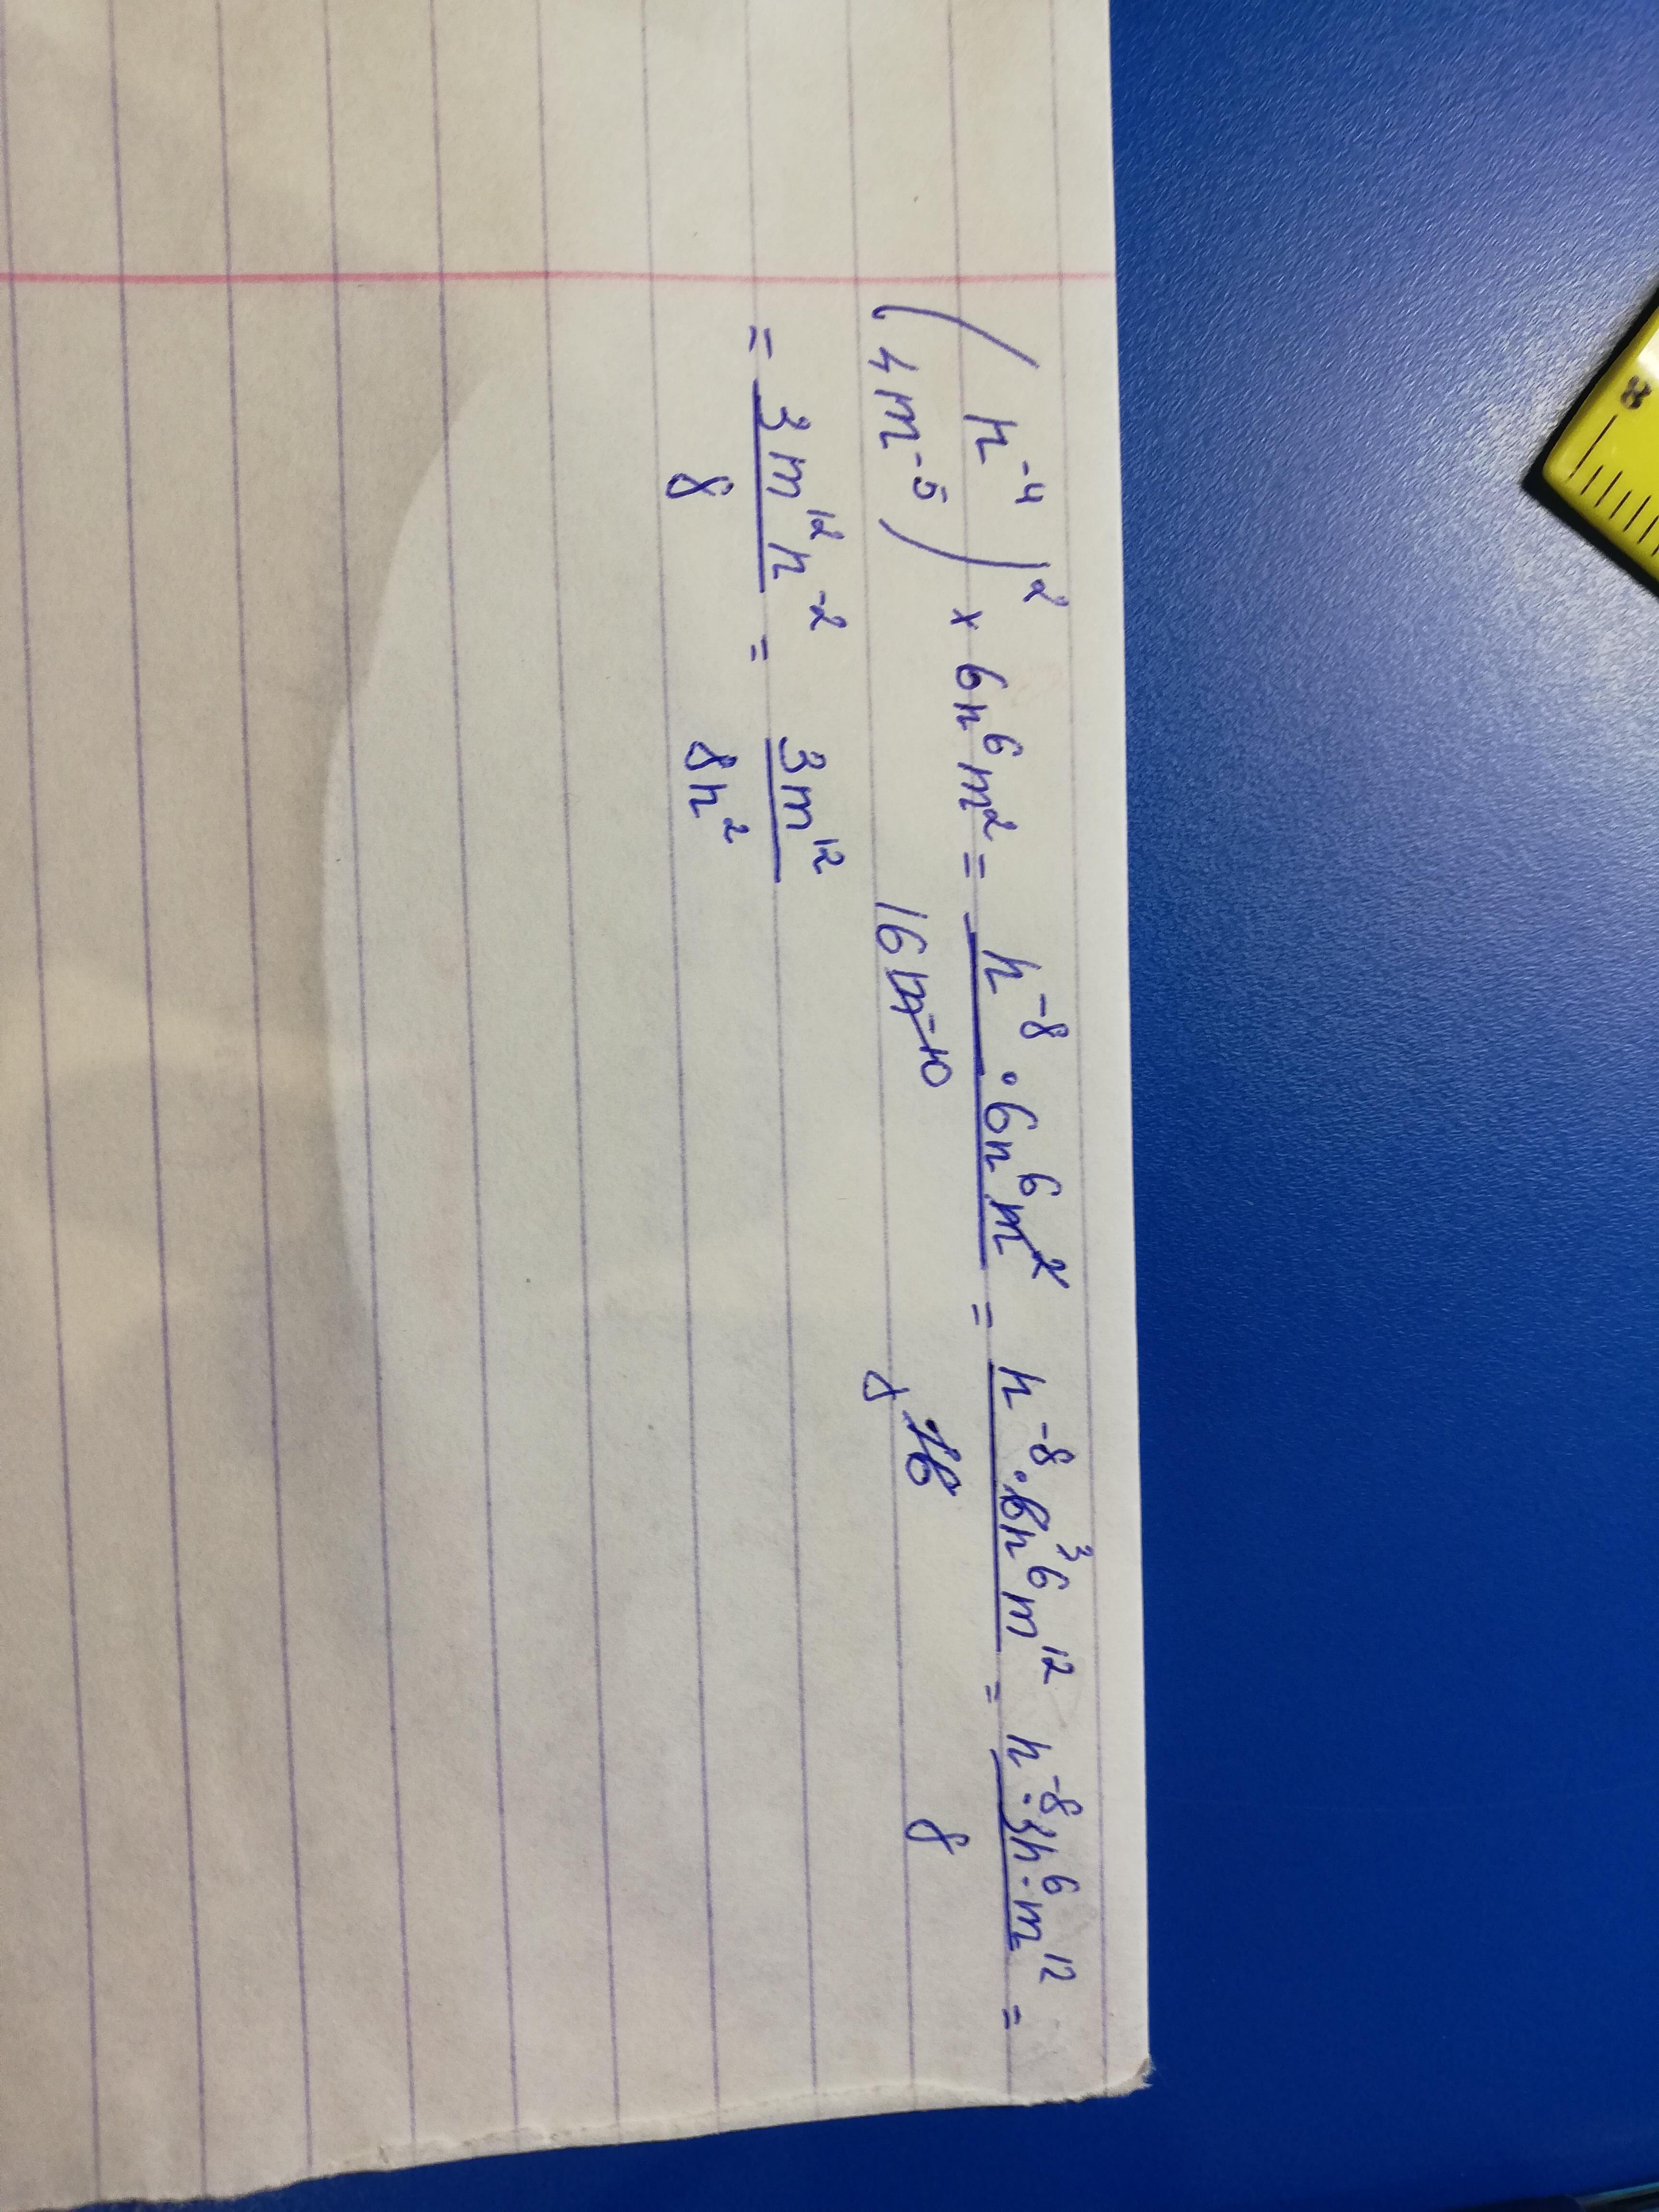 (n⁻⁴/4m⁻⁵)² × 6n⁶m² = n⁻⁸·6n⁶m²/16m⁻¹⁰ = n⁻⁸·6³n⁶m¹²/8 16 = n⁻⁸·3n⁶·m¹²/8 =
= 3m¹²n⁻²/8 = 3m¹²/8n²
8